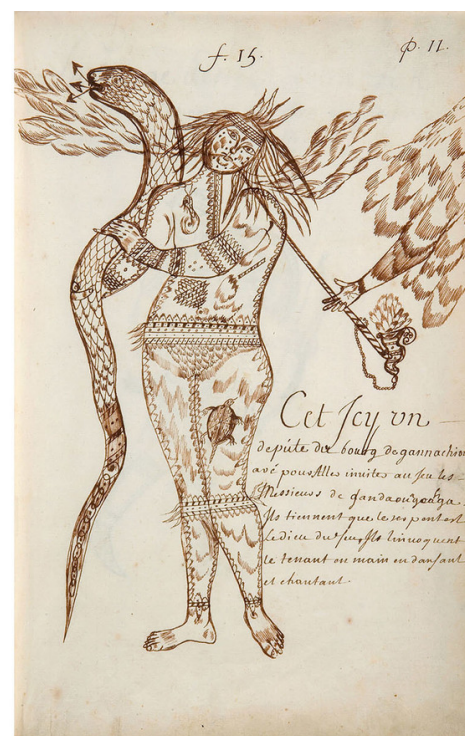 f. 15.
p. 11.
Cet Jcy un
depúte du bourg de gannachiou
avé pour aller inuiter au Jeu les
Messieurs de gandaoúgoaga
Jls tiennent que le serpent est
Le dieu du feu, Jls linuoquent
le tenant en main en dansant
et chantant